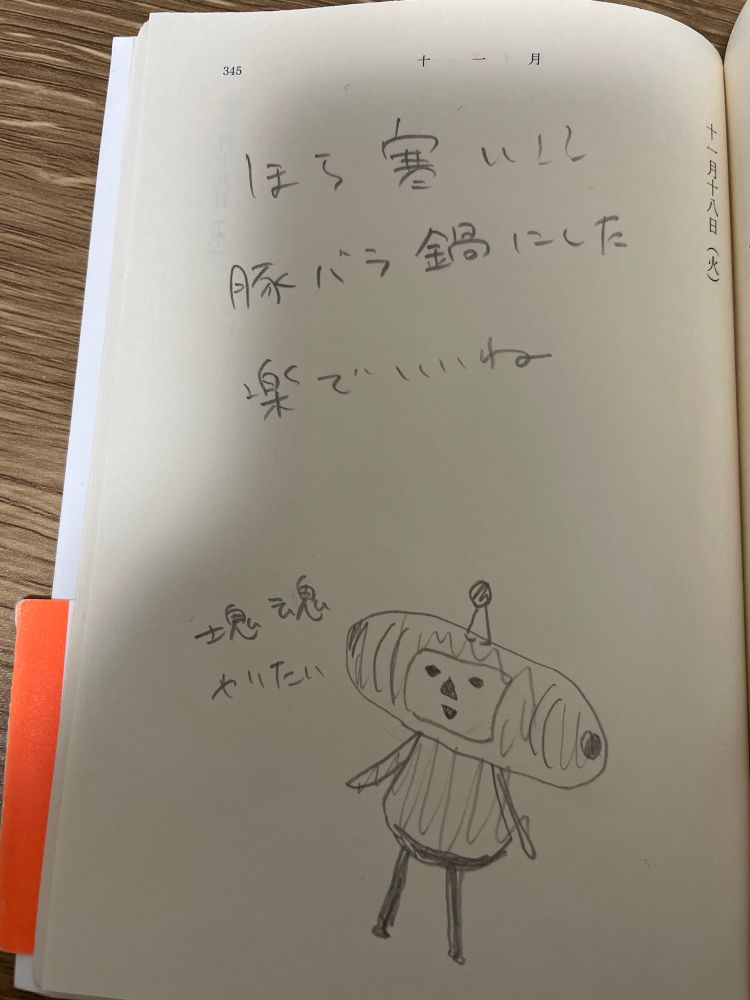 345
十一月
十一月十八日（火）
ほら寒い！！
豚バラ鍋にした
楽でいいね
塊魂
やりたい